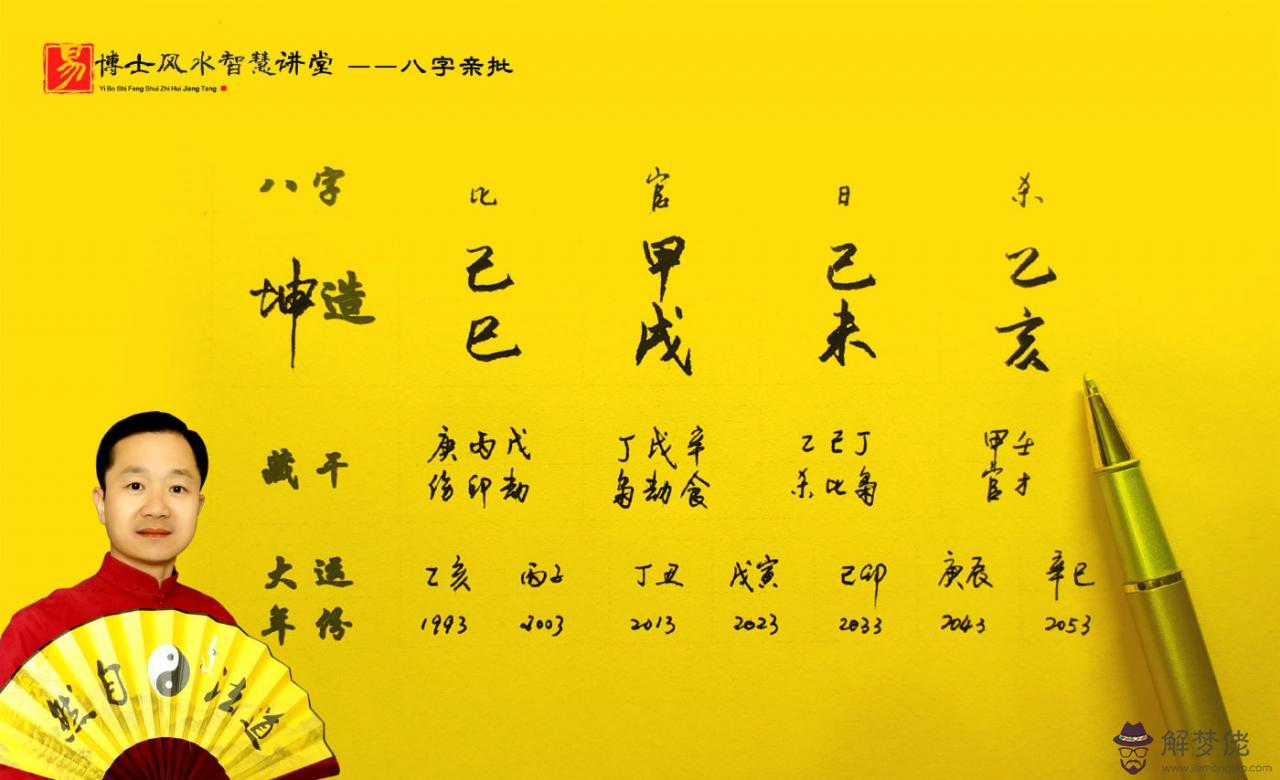 易 博士风水智慧讲堂 ——八字亲批
Yi Bo Shi Feng Shui Zhi Hui Jiang Tang
八字 比 官 日 杀
坤造 己 甲 己 乙
巳 戌 未 亥
藏干 庚丙戊 丁戊辛 乙己丁 甲壬
伤印劫 枭劫食 杀比枭 官才
大运 乙亥 丙子 丁丑 戊寅 己卯 庚辰 辛巳
年份 1993 2003 2013 2023 2033 2043 2053
道法自然
解梦佬